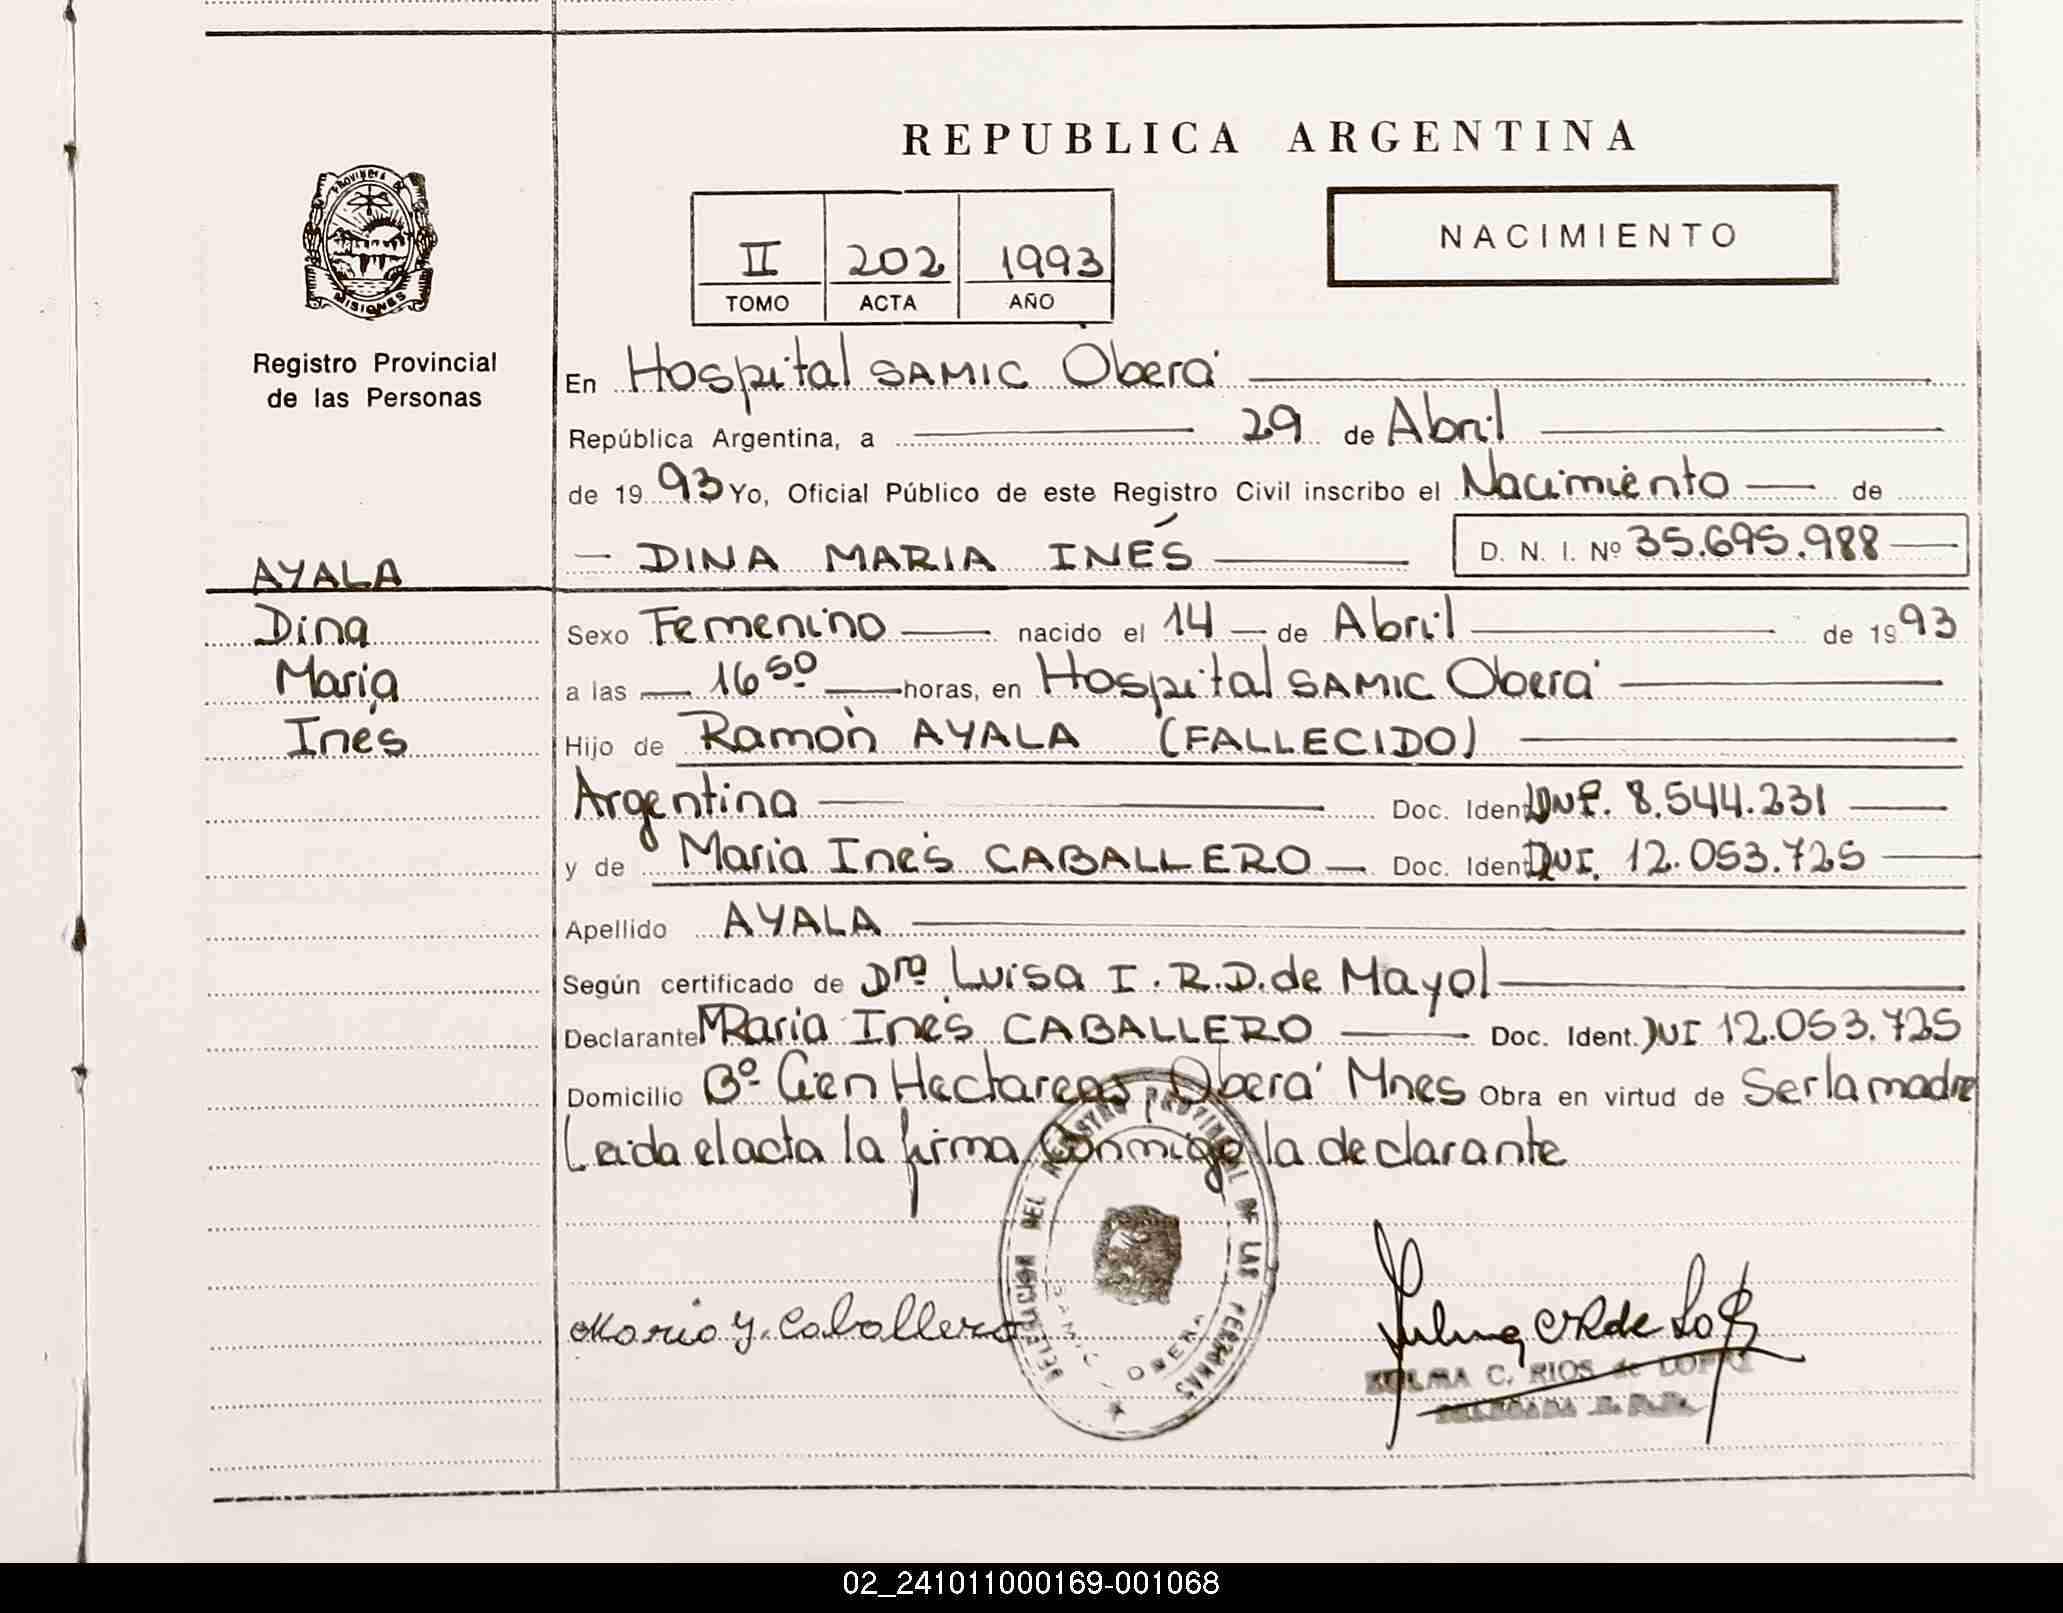 REPUBLICA ARGENTINA
PROVINCIA DE MISIONES
Registro Provincial
de las Personas
II 202 1993
TOMO ACTA AÑO
NACIMIENTO
En Hospital SAMIC Oberá
República Argentina, a 29 de Abril
de 1993 Yo, Oficial Público de este Registro Civil inscribo el Nacimiento de
DINA MARIA INÉS D. N. I. Nº 35.695.988
AYALA
Dina
María
Inés
Sexo Femenino nacido el 14 de Abril de 1993
a las 16 50 horas, en Hospital SAMIC Oberá
Hijo de Ramón AYALA (FALLECIDO)
Argentina Doc. Ident. 8.544.231
y de Maria Inés CABALLERO Doc. Ident. DNI. 12.053.725
Apellido AYALA
Según certificado de Dra Luisa I. R.D. de Mayol
Declarante Maria Inés CABALLERO Doc. Ident. DNI 12.053.725
Domicilio Bº Cien Hectareas Oberá Mnes Obra en virtud de Ser la madre
Leida el acta la firma Conmigo la declarante
DELEGACION DEL REGISTRO PROVINCIAL DE LAS PERSONAS
SAMIC OBERA
Maria Y. Caballero
ZULMA C. RIOS de LOPEZ
DELEGADA R. P. P.
02_241011000169-001068